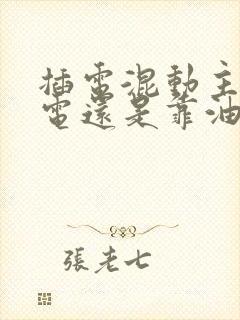 插電混動主
電還是靠油
張老七